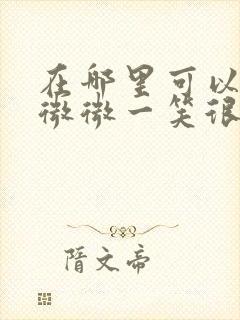 在哪里可以
微微一笑很
隋文帝